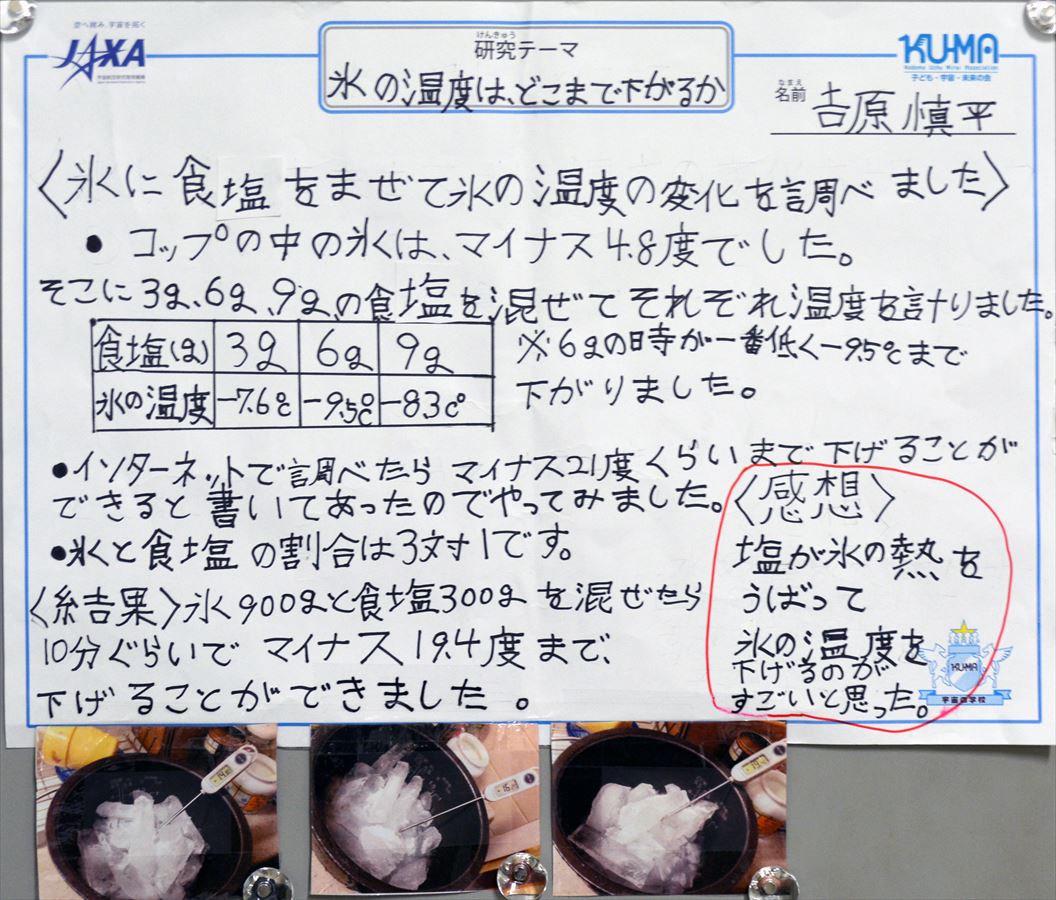 空へ挑み、宇宙を拓く
JAXA
宇宙航空研究開発機構
けんきゅう
研究テーマ
氷の温度は、どこまで下がるか
KU-MA
Kodomo Uchu Mirai Association
子ども・宇宙・未来の会
なまえ
名前 吉原慎平
〈氷に食塩をまぜて氷の温度の変化を調べました〉
• コップの中の氷は、マイナス4.8度でした。
そこに3g、6g、9g、の食塩を混ぜてそれぞれ温度を計りました。
食塩(g) 3g 6g 9g
氷の温度 -7.6℃ -9.5℃ -8.3C°
※6gの時が一番低く-9.5℃まで
下がりました。
•インターネットで調べたらマイナス21度くらいまで下げることが
できると書いてあったのでやってみました。
•氷と食塩の割合は3対1です。
〈結果〉氷900gと食塩300gを混ぜたら
10分ぐらいでマイナス19.4度まで、
下げることができました。
〈感想〉
塩が氷の熱を
うばって
氷の温度を
下げるのが
すごいと思った。
KU-MA
宇宙の学校